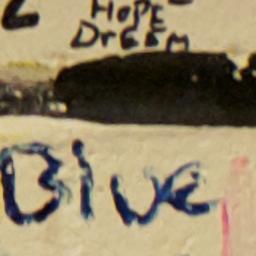 HOPE
Dream
Blue